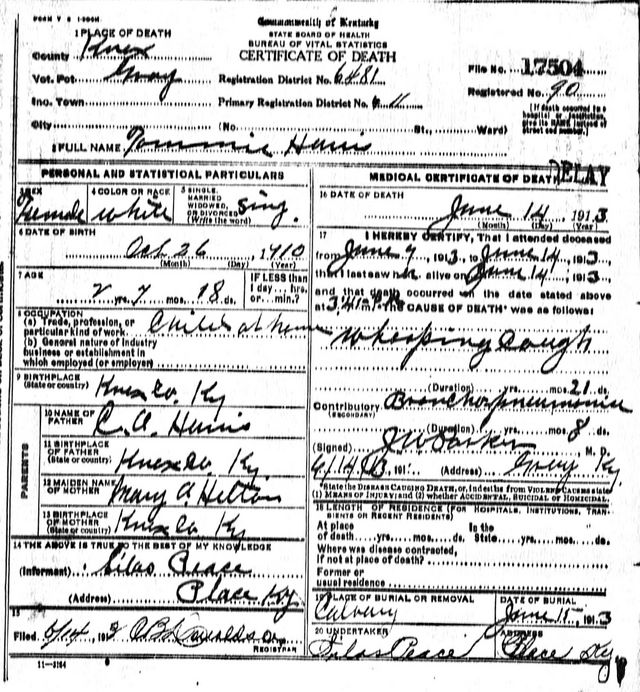 FORM V S 1-200M
Commonwealth of Kentucky
STATE BOARD OF HEALTH
BUREAU OF VITAL STATISTICS
CERTIFICATE OF DEATH
1 PLACE OF DEATH
County Knox
Vot. Pct Gray
Registration District No. 6481
File No. 17504
Registered No. 90
Inc. Town
Primary Registration District No.
(If death occurred in a hospital or institution, give its NAME instead of street and number.)
City (No. St., Ward)
2 FULL NAME Tommie Harris
PERSONAL AND STATISTICAL PARTICULARS
3 SEX Female
4 COLOR OR RACE White
5 SINGLE, MARRIED WIDOWED, OR DIVORCED (Write the word) Sing.
6 DATE OF BIRTH
Oct 26, 1910
(Month) (Day) (Year)
7 AGE
2 yrs. 7 mos. 18 ds.
IF LESS than 1 day... hrs. or... min.?
8 OCCUPATION
(a) Trade, profession, or particular kind of work Child at home
(b) General nature of industry business or establishment in which employed (or employer)
9 BIRTHPLACE (State or country) Knox Co. Ky
PARENTS
10 NAME OF FATHER C. A. Harris
11 BIRTHPLACE OF FATHER (State or country) Knox Co. Ky.
12 MAIDEN NAME OF MOTHER Mary A Helton
13 BIRTHPLACE OF MOTHER (State or country) Knox Co. Ky
14 THE ABOVE IS TRUE TO THE BEST OF MY KNOWLEDGE
(Informant) Silas Peace
(Address) Place Ky
15
Filed 6/14 1913
REGISTRAR
11-3184
MEDICAL CERTIFICATE OF DEATH
DELAY
16 DATE OF DEATH
June 14 1913
(Month) (Day) (Year)
17 I HEREBY CERTIFY, That I attended deceased
from June 9 1913, to June 14, 1913
that I last saw h alive on June 14, 1913
and that death occurred on the date stated above
at The CAUSE OF DEATH* was as follows:
Whooping Cough
(Duration) yrs. mos. 21 ds.
Contributory (SECONDARY) Broncho pneumonia
(Duration) yrs. mos. 8 ds.
(Signed) J W Parker M. D.
6/14/13, 191 (Address) Gray Ky
*State the DISEASE CAUSING DEATH, or in deaths from VIOLENT CAUSES state (1) MEANS OF INJURY; and (2) whether ACCIDENTAL, SUICIDAL or HOMICIDAL.
18 LENGTH OF RESIDENCE (FOR HOSPITALS, INSTITUTIONS, TRANSIENTS OR RECENT RESIDENTS)
At place of death yrs. mos. ds. In the State yrs. mos. ds.
Where was disease contracted, If not at place of death?
Former or usual residence
19 PLACE OF BURIAL OR REMOVAL
Calvary
DATE OF BURIAL
June 15 1913
20 UNDERTAKER
Silas Peace
ADDRESS
Place Ky